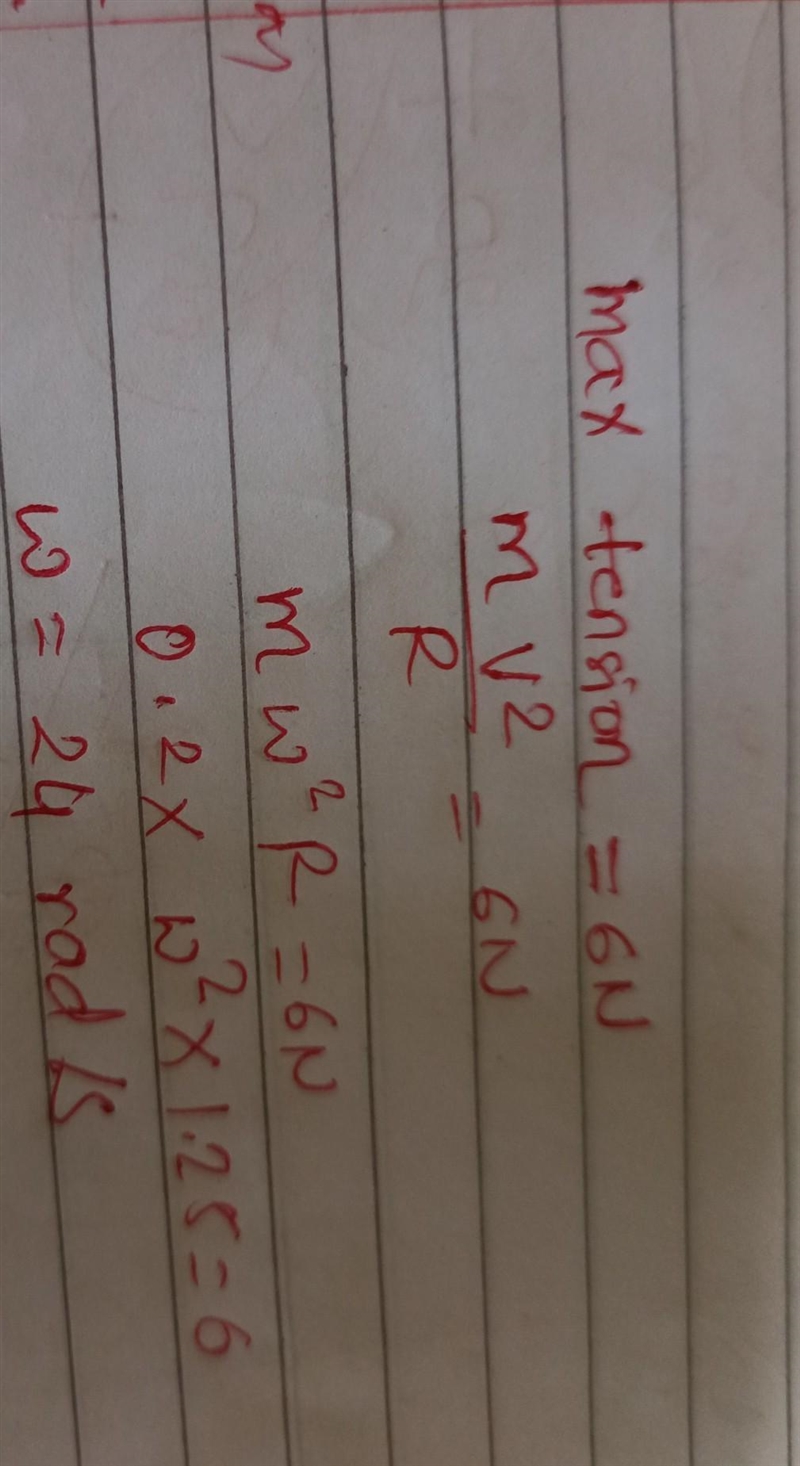 max tension = 6N
m v²/R = 6N
m ω² R = 6N
0.2 x ω² x 1.25 = 6
ω = 24 rad/s